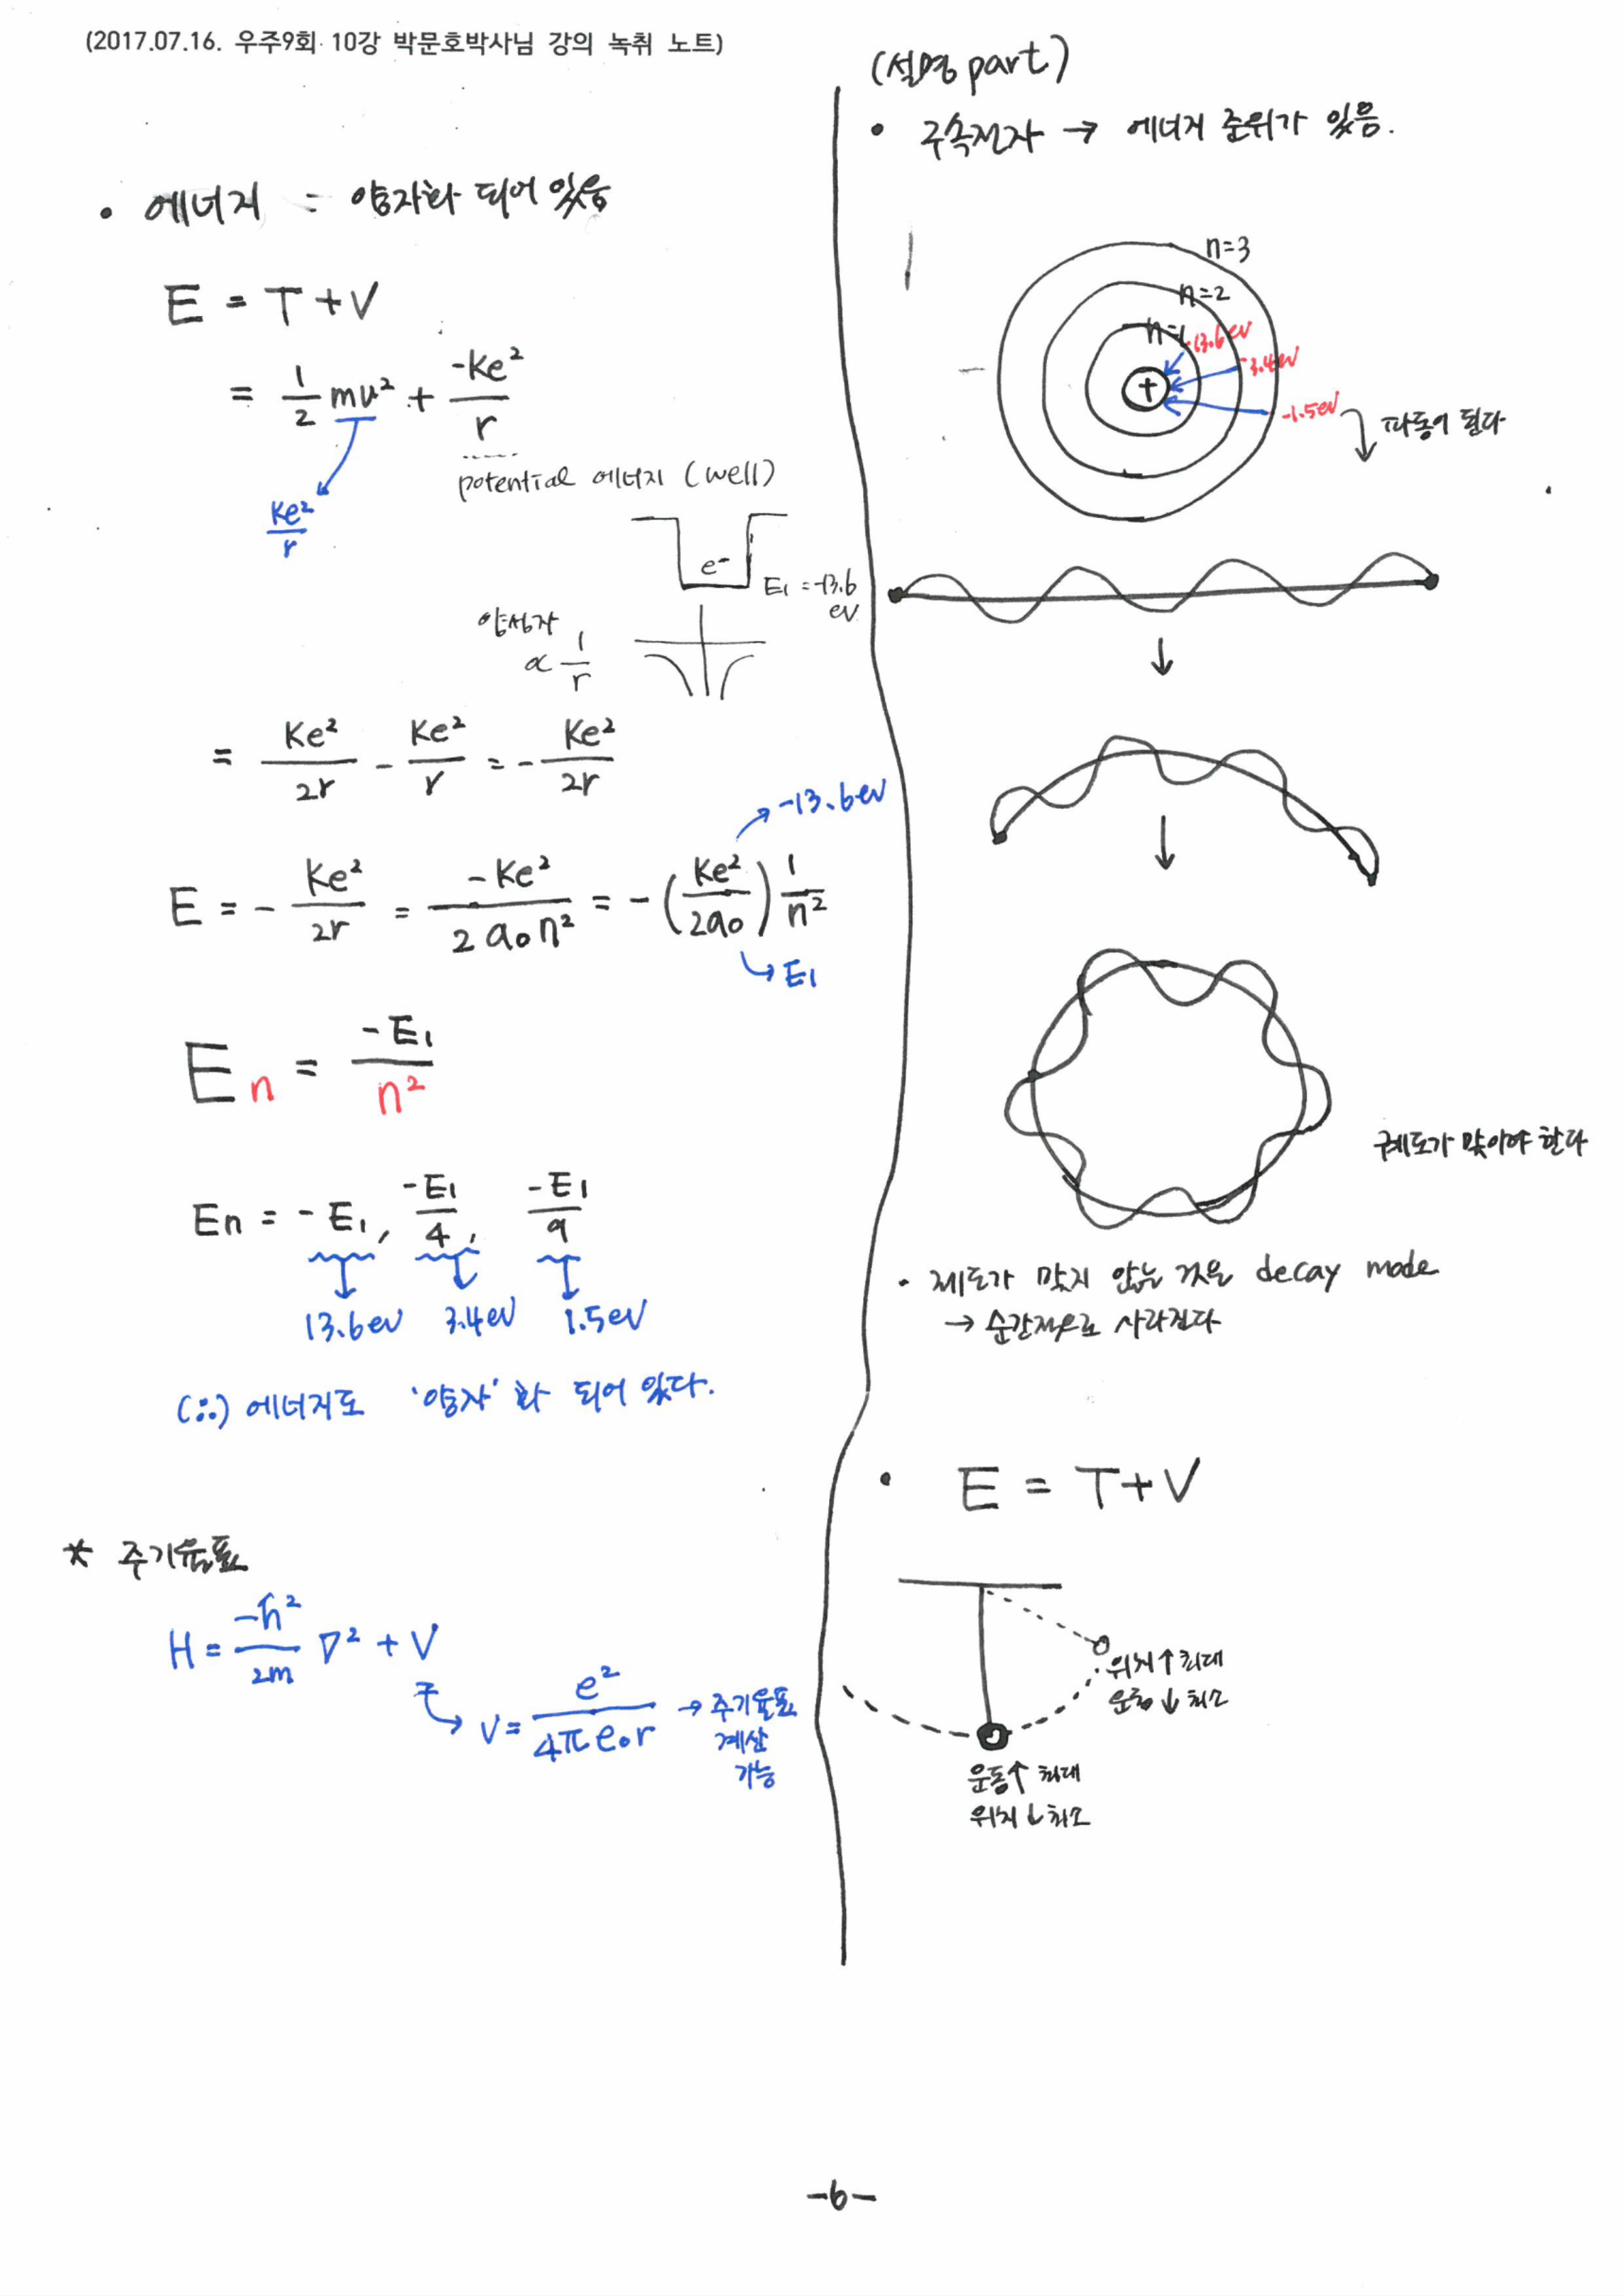 (2017.07.16. 우주9회 10강 박문호박사님 강의 녹취 노트)
• 에너지 = 양자화 되어 있음
E = T + V
= 1/2 mv² + -Ke²/r
Ke²/r
potential 에너지 (well)
e⁻
E₁ = -13.6
ev
양성자
∝ 1/r
= Ke²/2r - Ke²/r = - Ke²/2r
→ -13.6ev
E = - Ke²/2r = -Ke²/2a₀n² = -(Ke²/2a₀) 1/n²
→ E₁
En = -E₁/n²
En = -E₁, -E₁/4, -E₁/9
13.6ev 3.4ev 1.5ev
(∴) 에너지도 '양자'화 되어 있다.
* 주기율표
H = -ħ²/2m ∇² + V
V = e²/4πe₀r → 주기율표
계산
가능
(설명 part)
• 구속전자 → 에너지 준위가 있음.
n=3
n=2
n=1
-13.6ev
-3.4ev
-1.5ev
+
파동이 된다
궤도가 맞아야 한다
• 제도가 맞지 않는 것은 decay mode
→ 순간적으로 사라진다
• E = T + V
위치↑최대
운동↓최소
운동↑ 최대
위치↓최소
-6-